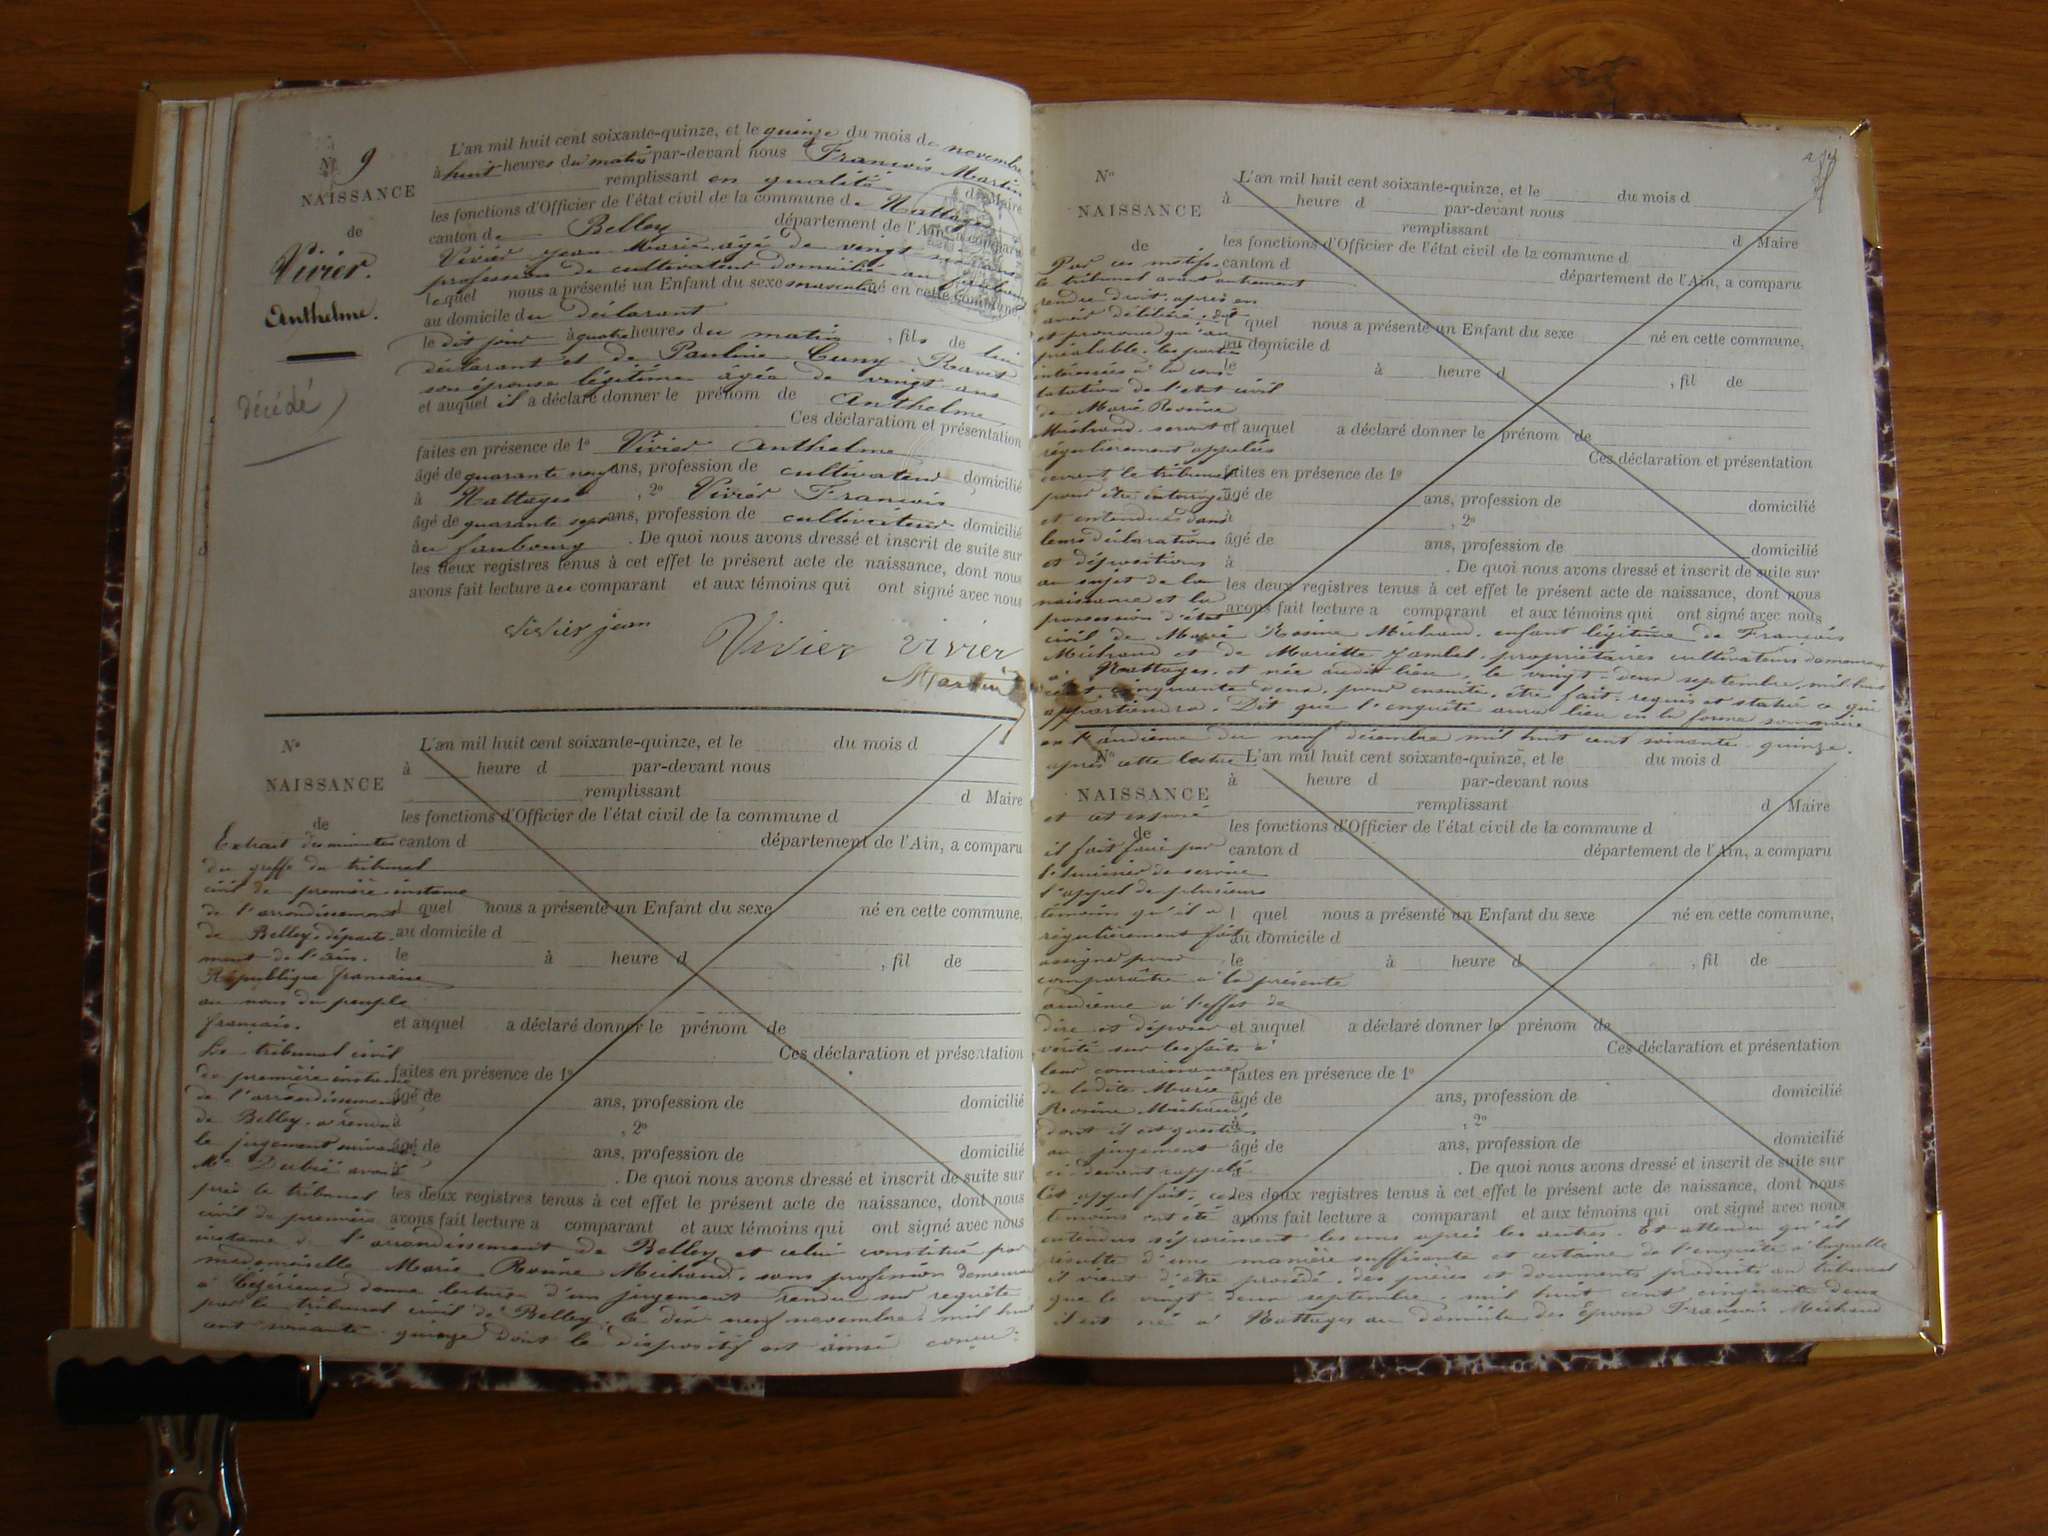 N° 9
NAISSANCE
de
Vivier.
Anthelme.
décédé
L'an mil huit cent soixante-quinze, et le quinze du mois de novembre
à huit heures du matin par-devant nous François Martin
remplissant en qualité de Maire
les fonctions d'Officier de l'état civil de la commune de Nattages
canton de Belley département de l'Ain, a comparu
Vivier Jean Marie âgé de vingt ans
profession de cultivateur domicilié au faubourg
lequel nous a présenté un Enfant du sexe masculin né en cette commune,
au domicile du déclarant
le dit jour à quatre heures du matin, fils de lui
déclarant et de Pauline Cuny Ravet
son épouse légitime âgée de vingt ans
et auquel il a déclaré donner le prénom de Anthelme
Ces déclaration et présentation
faites en présence de 1° Vivier Anthelme
âgé de quarante neuf ans, profession de cultivateur domicilié
à Nattages, 2° Vivier François
âgé de quarante sept ans, profession de cultivateur domicilié
au faubourg. De quoi nous avons dressé et inscrit de suite sur
les deux registres tenus à cet effet le présent acte de naissance, dont nous
avons fait lecture au comparant et aux témoins qui ont signé avec nous
Vivier jean Vivier vivier
Martin
N°
NAISSANCE
de
L'an mil huit cent soixante-quinze, et le du mois d
à heure d par-devant nous
remplissant d Maire
les fonctions d'Officier de l'état civil de la commune d
canton d département de l'Ain, a comparu
l quel nous a présenté un Enfant du sexe né en cette commune,
au domicile d
le à heure d , fil de
et auquel a déclaré donner le prénom de
Ces déclaration et présentation
faites en présence de 1°
âgé de ans, profession de domicilié
à , 2°
âgé de ans, profession de domicilié
à . De quoi nous avons dressé et inscrit de suite sur
les deux registres tenus à cet effet le présent acte de naissance, dont nous
avons fait lecture a comparant et aux témoins qui ont signé avec nous
Extrait des minutes
du greffe du tribunal
civil de première instance
de l'arrondissement
de Belley, départe-
ment de l'ain.
République française
au nom du peuple
français.
Le tribunal civil
de première instance
de l'arrondissement
de Belley, a rendu
le jugement suivant
Me Dubié avoué
près le tribunal
civil de première
instance de l'arrondissement de Belley et celui constitué par
mademoiselle Marie Rosine Michaud, sans profession demeurant
à donne lecture d'un jugement rendu sur requête
par le tribunal civil de Belley, le dix neuf novembre, mil huit
cent soixante quinze dont le dispositif est ainsi conçu:
N°
NAISSANCE
de
L'an mil huit cent soixante-quinze, et le du mois d
à heure d par-devant nous
remplissant d Maire
les fonctions d'Officier de l'état civil de la commune d
canton d département de l'Ain, a comparu
l quel nous a présenté un Enfant du sexe né en cette commune,
au domicile d
le à heure d , fil de
et auquel a déclaré donner le prénom de
Ces déclaration et présentation
faites en présence de 1°
âgé de ans, profession de domicilié
à , 2°
âgé de ans, profession de domicilié
à . De quoi nous avons dressé et inscrit de suite sur
les deux registres tenus à cet effet le présent acte de naissance, dont nous
avons fait lecture a comparant et aux témoins qui ont signé avec nous
Par ces motifs
le tribunal avant autrement
rendre droit, après en
avoir délibéré, dit
et prononce qu'au
préalable, les parties
intéressées à la cons-
tatation de l'etat civil
de Marie Rosine
Michaud, seront
régulièrement appelées
devant le tribunal
pour être interrogées
et entendues dans
leurs déclarations
et dépositions
au sujet de la
naissance et la
possession d'état
civil de Marie Rosine Michaud, enfant légitime de François
Michaud et de Mariette Jambel, propriétaires cultivateurs demeurant
à Nattages, et née audit lieu, le vingt-deux septembre, mil huit
cent cinquante deux, pour ensuite, être fait, requis et statué ce qui
appartiendra. Dit que l'enquête aura lieu en la forme sommaire
en l'audience du neuf décembre mil huit cent soixante quinze.
après cette lecture
N°
NAISSANCE
de
L'an mil huit cent soixante-quinze, et le du mois d
à heure d par-devant nous
remplissant d Maire
les fonctions d'Officier de l'état civil de la commune d
canton d département de l'Ain, a comparu
l quel nous a présenté un Enfant du sexe né en cette commune,
au domicile d
le à heure d , fil de
et auquel a déclaré donner le prénom de
Ces déclaration et présentation
faites en présence de 1°
âgé de ans, profession de domicilié
à , 2°
âgé de ans, profession de domicilié
à . De quoi nous avons dressé et inscrit de suite sur
les deux registres tenus à cet effet le présent acte de naissance, dont nous
avons fait lecture a comparant et aux témoins qui ont signé avec nous
et cet exposé
il fait faire par
l'huissier de service
l'appel de plusieurs
témoins qu'il a
régulièrement fait
assigner pour
comparaître à la présente
audience à l'effet de
dire et déposer
vérité sur les faits à
leur connaissance
de ladite Marie
Rosine Michaud
dont il est question
au jugement
ci-devant rappelé
Cet appel fait, ces
témoins ont été
entendus séparément les uns après les autres. Et attendu qu'il
résulte d'une manière suffisante et certaine de l'enquête à laquelle
il vient d'être procédé, des pièces et documents produits au tribunal
que le vingt deux septembre, mil huit cent cinquante deux
il est né à Nattages au domicile des époux François Michaud